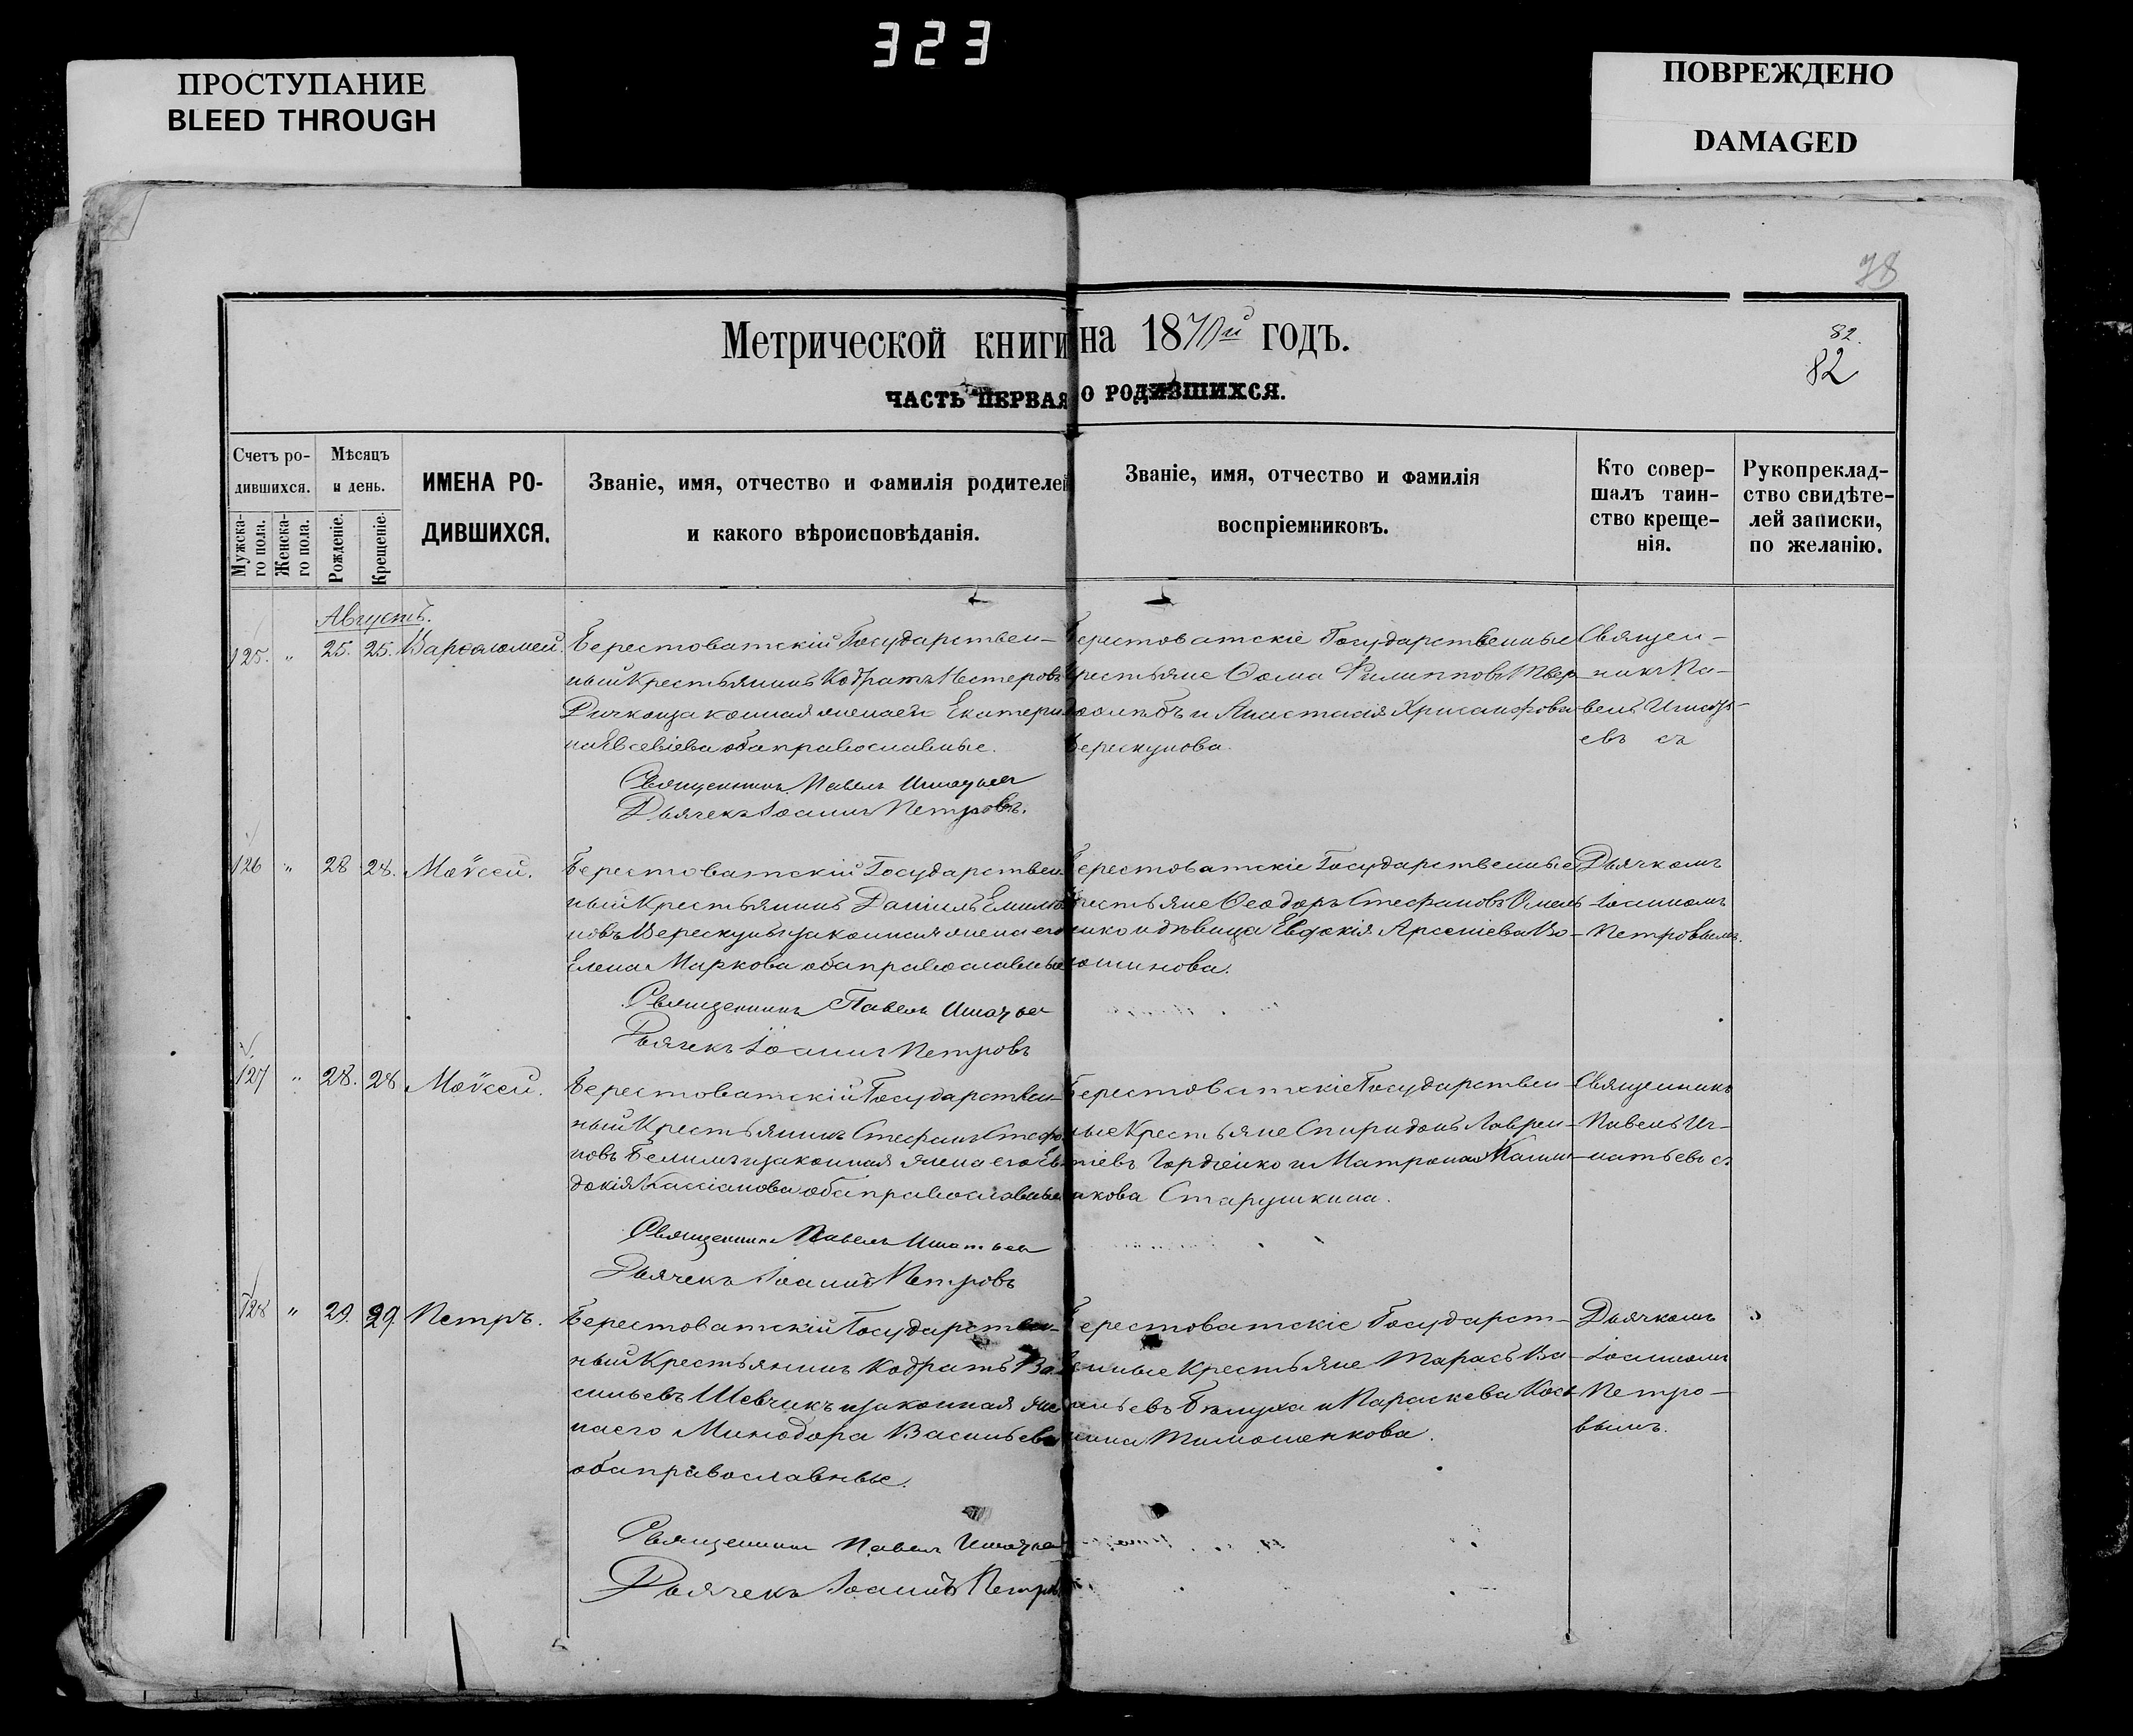 323
ПРОСТУПАНИЕ
BLEED THROUGH
ПОВРЕЖДЕНО
DAMAGED
78
Метрической книги на 1870й годъ.
82.
82
ЧАСТЬ ПЕРВАЯ О РОДИВШИХСЯ.
Счетъ ро-
дившихся.
Мужска-
го пола.
Женска-
го пола.
Мѣсяцъ
и день.
Рожденіе.
Крещеніе.
ИМЕНА РО-
ДИВШИХСЯ.
Званіе, имя, отчество и фамилія родителей
и какого вѣроисповѣданія.
Званіе, имя, отчество и фамилія
воспріемниковъ.
Кто совер-
шалъ таин-
ство креще-
нія.
Рукопреклад-
ство свидѣте-
лей записки,
по желанію.
Августъ.
125. " 25. 25. Варфоломей.
Берестоватскій Государствен-
ный Крестьянинъ Кодратъ Нестеровъ
законная жена его Екатери
на Евсевіева оба православные.
Священникъ Павелъ Игнатьев
Дьячекъ Іоаннъ Петровъ.
Берестоватскіе Государственные
Крестьяне Ѳома Филипповъ Твер
дохлѣбъ и Анастасія Хрисанфова
Верескунова.
Священ-
никъ Па-
велъ Игнать-
евъ съ
126 " 28 28. Моѵсей.
Берестоватскій Государствен
ный Крестьянинъ Даніилъ Емилія
новъ Верескунъ и законная жена его
Елена Маркова оба православные
Священникъ Павелъ Игнатьев
Дьячекъ Іоаннъ Петровъ
Берестоватскіе Государственные
Крестьяне Ѳеодоръ Стефановъ Омель
ченко и дѣвица Евдокія Арсеніева Во-
лошинова.
Дьячкомъ
Іоанномъ
Петровымъ.
127 " 28. 28 Моѵсей.
Берестоватскій Государствен-
ный Крестьянинъ Стефанъ Стефа
новъ и законная жена его Ев
докія Кассіанова оба православные
Священникъ Павелъ Игнатьев
Дьячекъ Іоаннъ Петровъ
Берестоватскіе Государствен-
ные Крестьяне Спиридонъ Лаврен-
тіевъ Гордіенко и Матрона
Старушкина.
Священникъ
Павелъ Иг-
натьевъ съ
128 " 29. 29. Петръ.
Берестоватскій Государствен-
ный Крестьянинъ Кодратъ Ва
сильевъ Шевчикъ и законная же
на его Минодора Васильева
оба православные.
Священникъ Павелъ Игнатьев
Дьячекъ Іоаннъ Петровъ
Берестоватскіе Государст-
венные Крестьяне Тарасъ Ва-
сильевъ Бѣлуха и Параскева Кось
мина Тимошенкова.
Дьячкомъ
Іоанномъ
Петро-
вымъ.